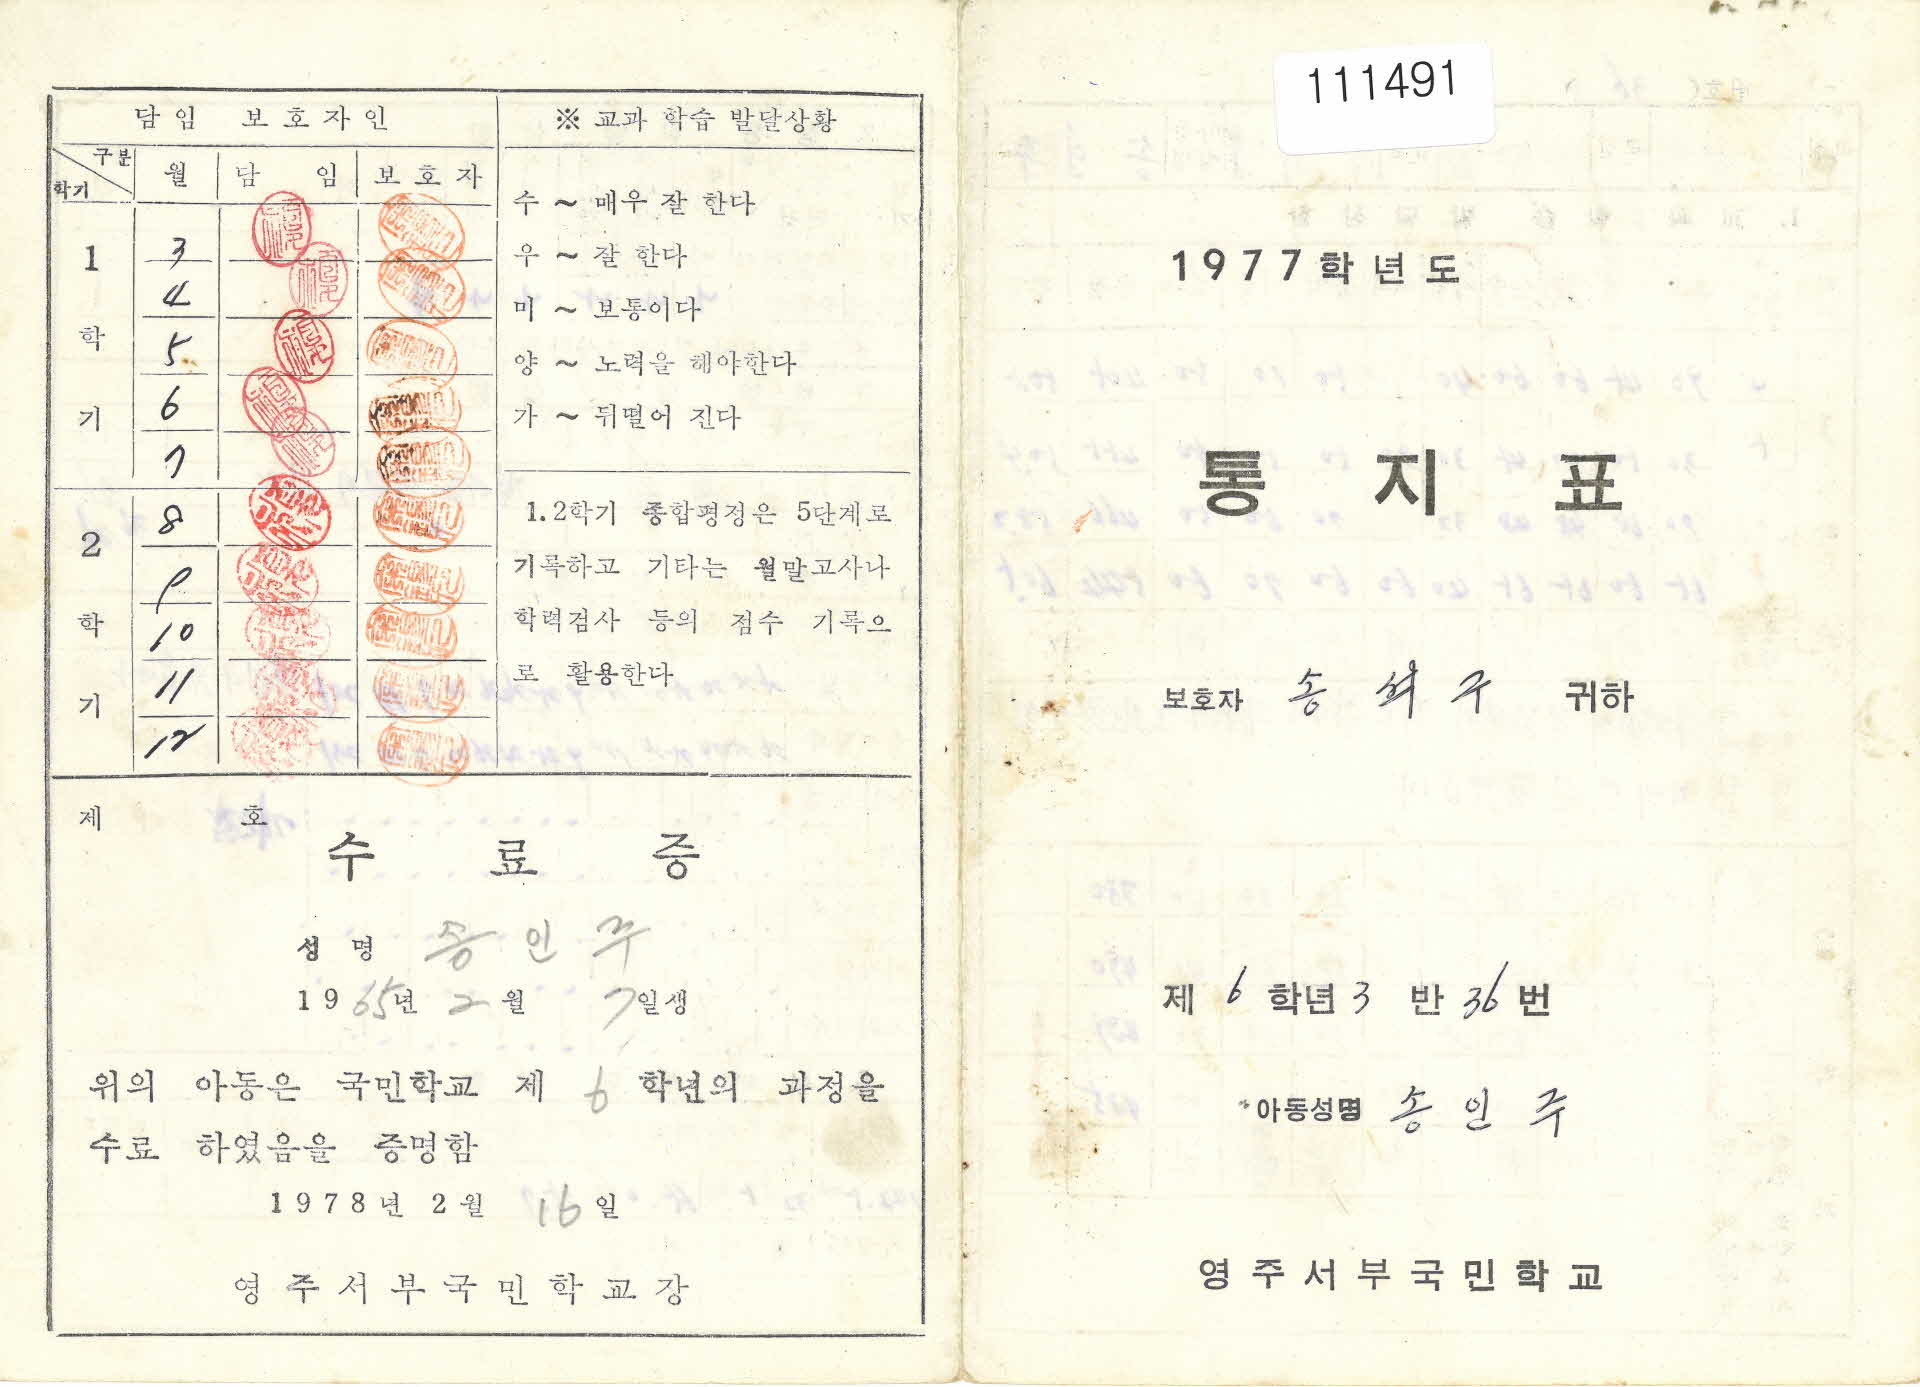 담임 보호자인
구분
학기
월 담 임 보호자
1 학기
3
4
5
6
7
2 학기
8
9
10
11
12
※ 교과 학습 발달상황
수 ~ 매우 잘 한다
우 ~ 잘 한다
미 ~ 보통이다
양 ~ 노력을 헤야한다
가 ~ 뒤떨어 진다
1.2학기 종합평정은 5단계로
기록하고 기타는 월말고사나
학력검사 등의 점수 기록으
로 활용한다
제 호
수 료 증
성 명 송인주
1965년 2월 7일생
위의 아동은 국민학교 제 6 학년의 과정을
수료 하였음을 증명함
1978년 2월 16일
영주서부국민학교장
111491
1977학년도
통 지 표
보호자 송석구 귀하
제 6 학년 3 반 36 번
아동성명 송인주
영주서부국민학교